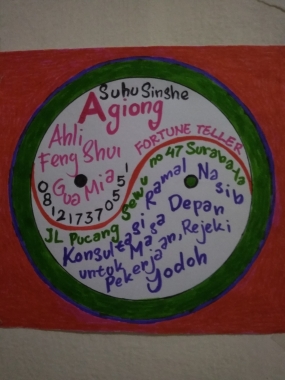 Suhu Sinshe
Agiong
Ahli
Feng Shui
Gua Mia
081217370551
FORTUNE TELLER
JL Pucang Sewu no 47 Surabaya
Konsultasi Ramal Nasib
untuk Masa Depan
Pekerjaan, Rejeki
Yodoh